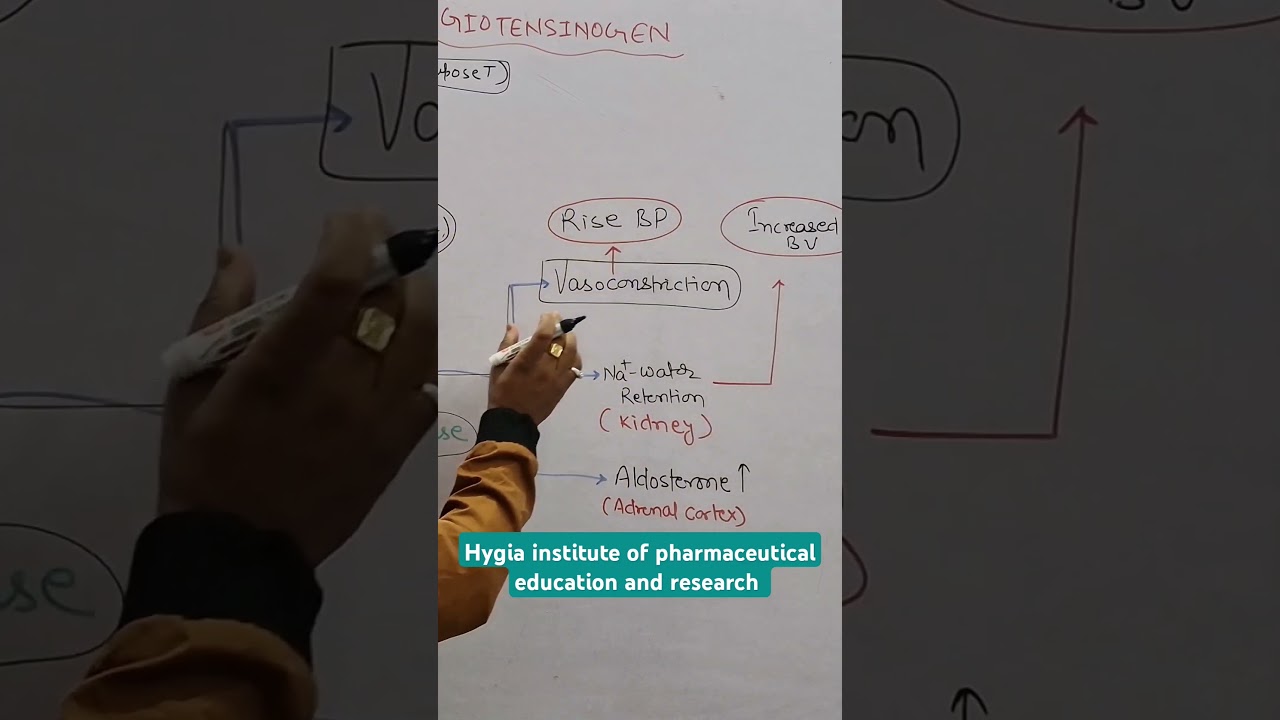 GIOTENSINOGEN
pose T)
Rise BP
Increased
BV
Vasoconstriction
Na⁺-water
Retention
(Kidney)
se
Aldosterone ↑
(Adrenal cortex)
Hygia institute of pharmaceutical
education and research